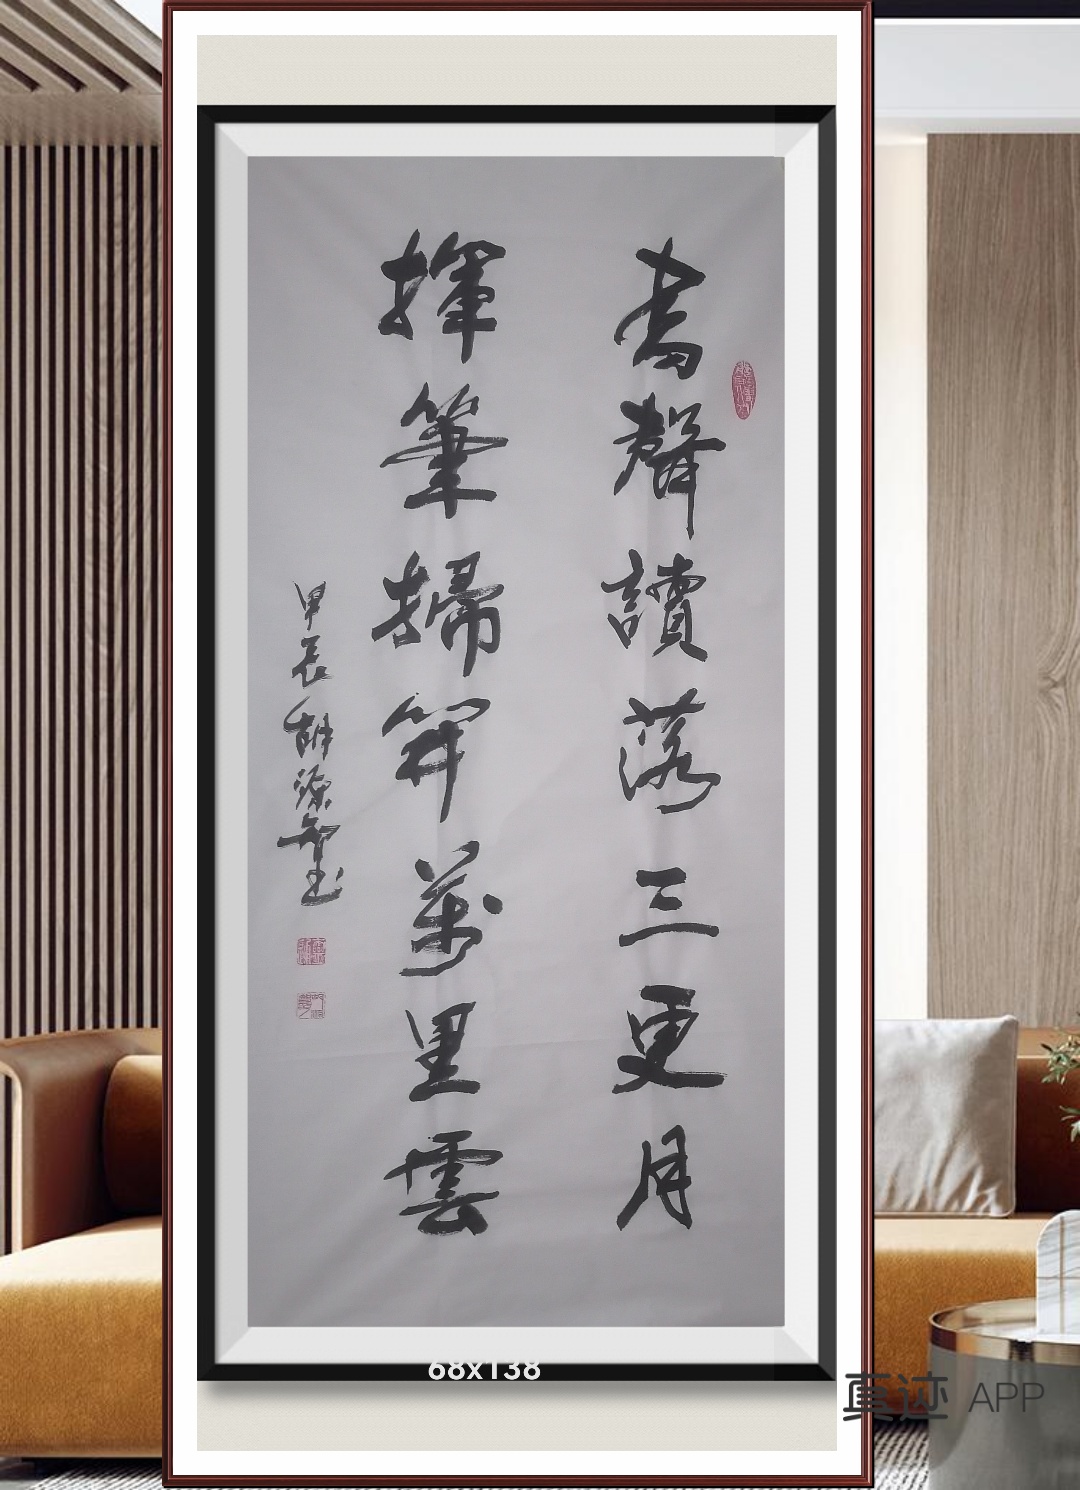 書聲讀落三更月
揮筆掃開萬里雲
甲辰胡
68x138
真迹 APP